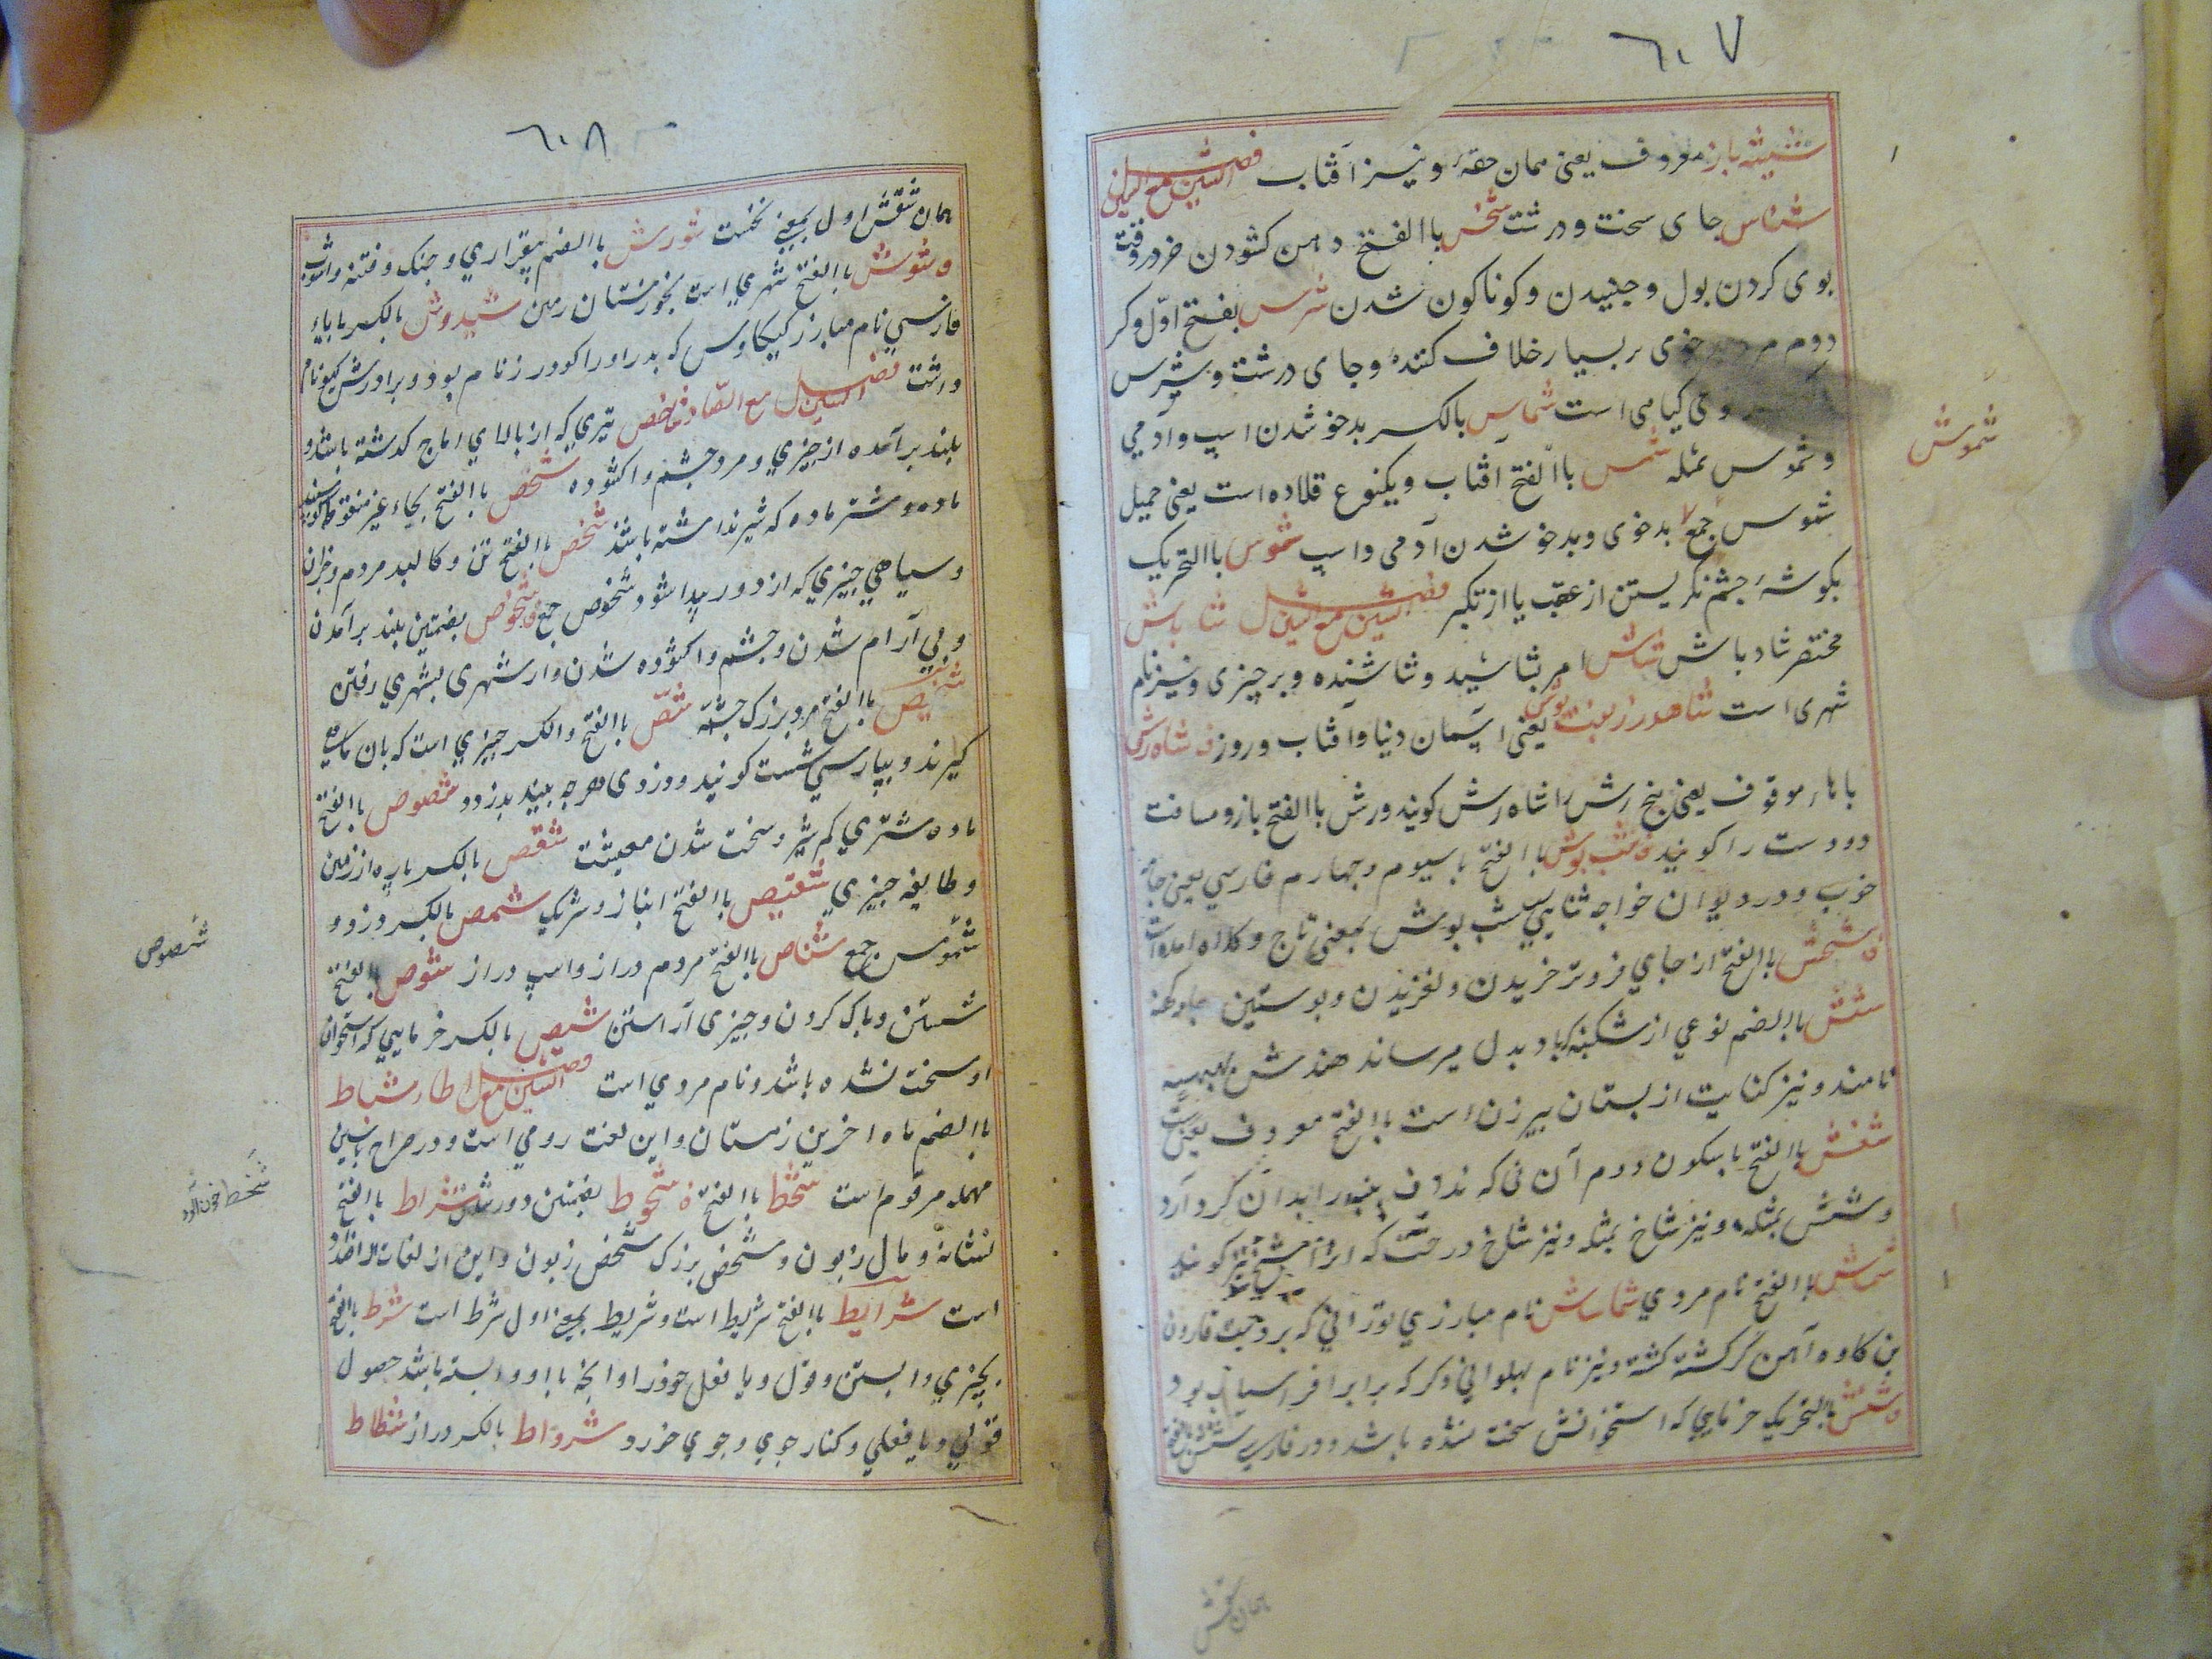 ٦٠٧
شیشه باز معروف یعنی همان حقه و نیز آفتاب فصل الشین مع السین
شناس جای سخت و درشت شخس باالفتح دهن کشودن خر در وقت
بوی کردن بول و جنبیدن و کوناکون شدن شرس بفتح اوّل و کسر
دوم مرد خوی بر بسیار خلاف کننده و جای درشت و شرس
وی کیاهی است شماس بالکسر بدخو شدن اسپ و آدمی
شموش
و شموس مثله شمس باالفتح آفتاب و یکنوع قلاده است یعنی حمیل
شموس جمع بدخوی و بدخو شدن آدمی و اسپ شموس باالتحریک
بکوشهٔ چشم نکریستن از عقب یا از تکبر فصل الشین مع الشین شاباش
مختصر شاد باش شاش امر بشاشید و شاشنده و بر چیزی و نیز نام
شهری است شاهد رزبفت پوش یعنی آسمان دنیا و آفتاب و روز ف شاه رش
با هاء موقوف یعنی پنج رش را شاه رش کویند و رش باالفتح بازو مسافت
دو دست را کویند ف شب پوش باالفتح با سیوم و چهارم فارسی یعنی جامهٔ
خوب و در دیوان خواجه ثنایی شب پوش بمعنی تاج و کلاه آمده است
ف شخش باالفتح از جای فروتر خزیدن و لغزیدن و پوستین جامه کهنه
شش باالضم نوعی از شکنبه که باد بدل میرساند هندش
نامند و نیز کنایت از پستان پیر زن است باالفتح معروف یعنی
شفش باالفتح با سکون دوم آن نی که نداف پنبه را بدان کرد آرد
و شفش بمثله و نیز شاخ بمثله و نیز شاخ درخت که
شماش باالفتح نام مردی شماساش نام مبارزی تورانی که بر دست قارون
بن کاوه آهن کر کشته کشته و نیز نام پهلوانی دکر که برابر افراسیاب بود
ف شمش باالتحریک خرمایی که استخوانش سخت نشده باشد و در فارسی
همان شقش
٦٠٨
همان شقش اول بمعنی نخست شورش باالضم بیقراری و جنک و فتنه و آشوب
و شوش باالفتح شهری است بخورستان زمین شیدوش بالکسر با یاء
فارسی نام مبارز کیکاوس که پدر او را کودرز نام بود و برادرش کیو نام
داشت فصل الشین مع الصّاد شاخص تیری که از بالای اماج کذشته باشد و
بلند برآمده از چیزی و مرد چشم واکشوده شخص باالفتح بحاء غیر منقوطه
ماده و شتر ماده که شیر نداشته باشد شخص باالفتح تن و کالبد مردم و جز آن
و سیاهی چیزی که از دور پیدا شود شخوص جمع ف شخوص بضمتین بلند برآمدن
و بی آرام شدن و چشم واکشوده شدن و از شهری بشهری رفتن
شخیص باالفتح مرد بزرک جثّه شصّ باالفتح و الکسر چیزی است که بان ماهی
کیرند و بپارسی شست کویند و دزدی هرچه بیند بدزدد شصوص باالفتح
ماده شتری کم شیر و سخت شدن معیشت شقص بالکسر پاره از زمین
شصوص
و طایفه چیزی شقیص باالفتح انباز و شریک شمص بالکسر دزد و
شموص جمع شناص باالفتح مردم دراز و اسپ دراز شوص باالفتح
شستن و پاک کردن و چیزی آراستن شیص بالکسر خرمایی که استخوان
او سخت نشده باشد و نام مردی است فصل الشین مع الطاء شباط
باالضم ماه آخرین زمستان و این لغت رومی است و در صراح با سین
مهمله مرقوم است شحط باالفتح ف شحوط بضمتین دور شدن شراط باالفتح
شخط خون آلود
نشانهٔ و مال زبون و شخص بزرک شخص زبون و این از لغات الاضداد
است شرایط باالفتح شریط است و شریط بمعنی اول شرط است شرط باالفتح
بچیزی وابستن و قول و یا فعل خود را و آنچه با او وابسته باشد حصول
قولی و یا فعلی و کنار جوی و جوی خرد و شرواط بالکسر دراز شطاط